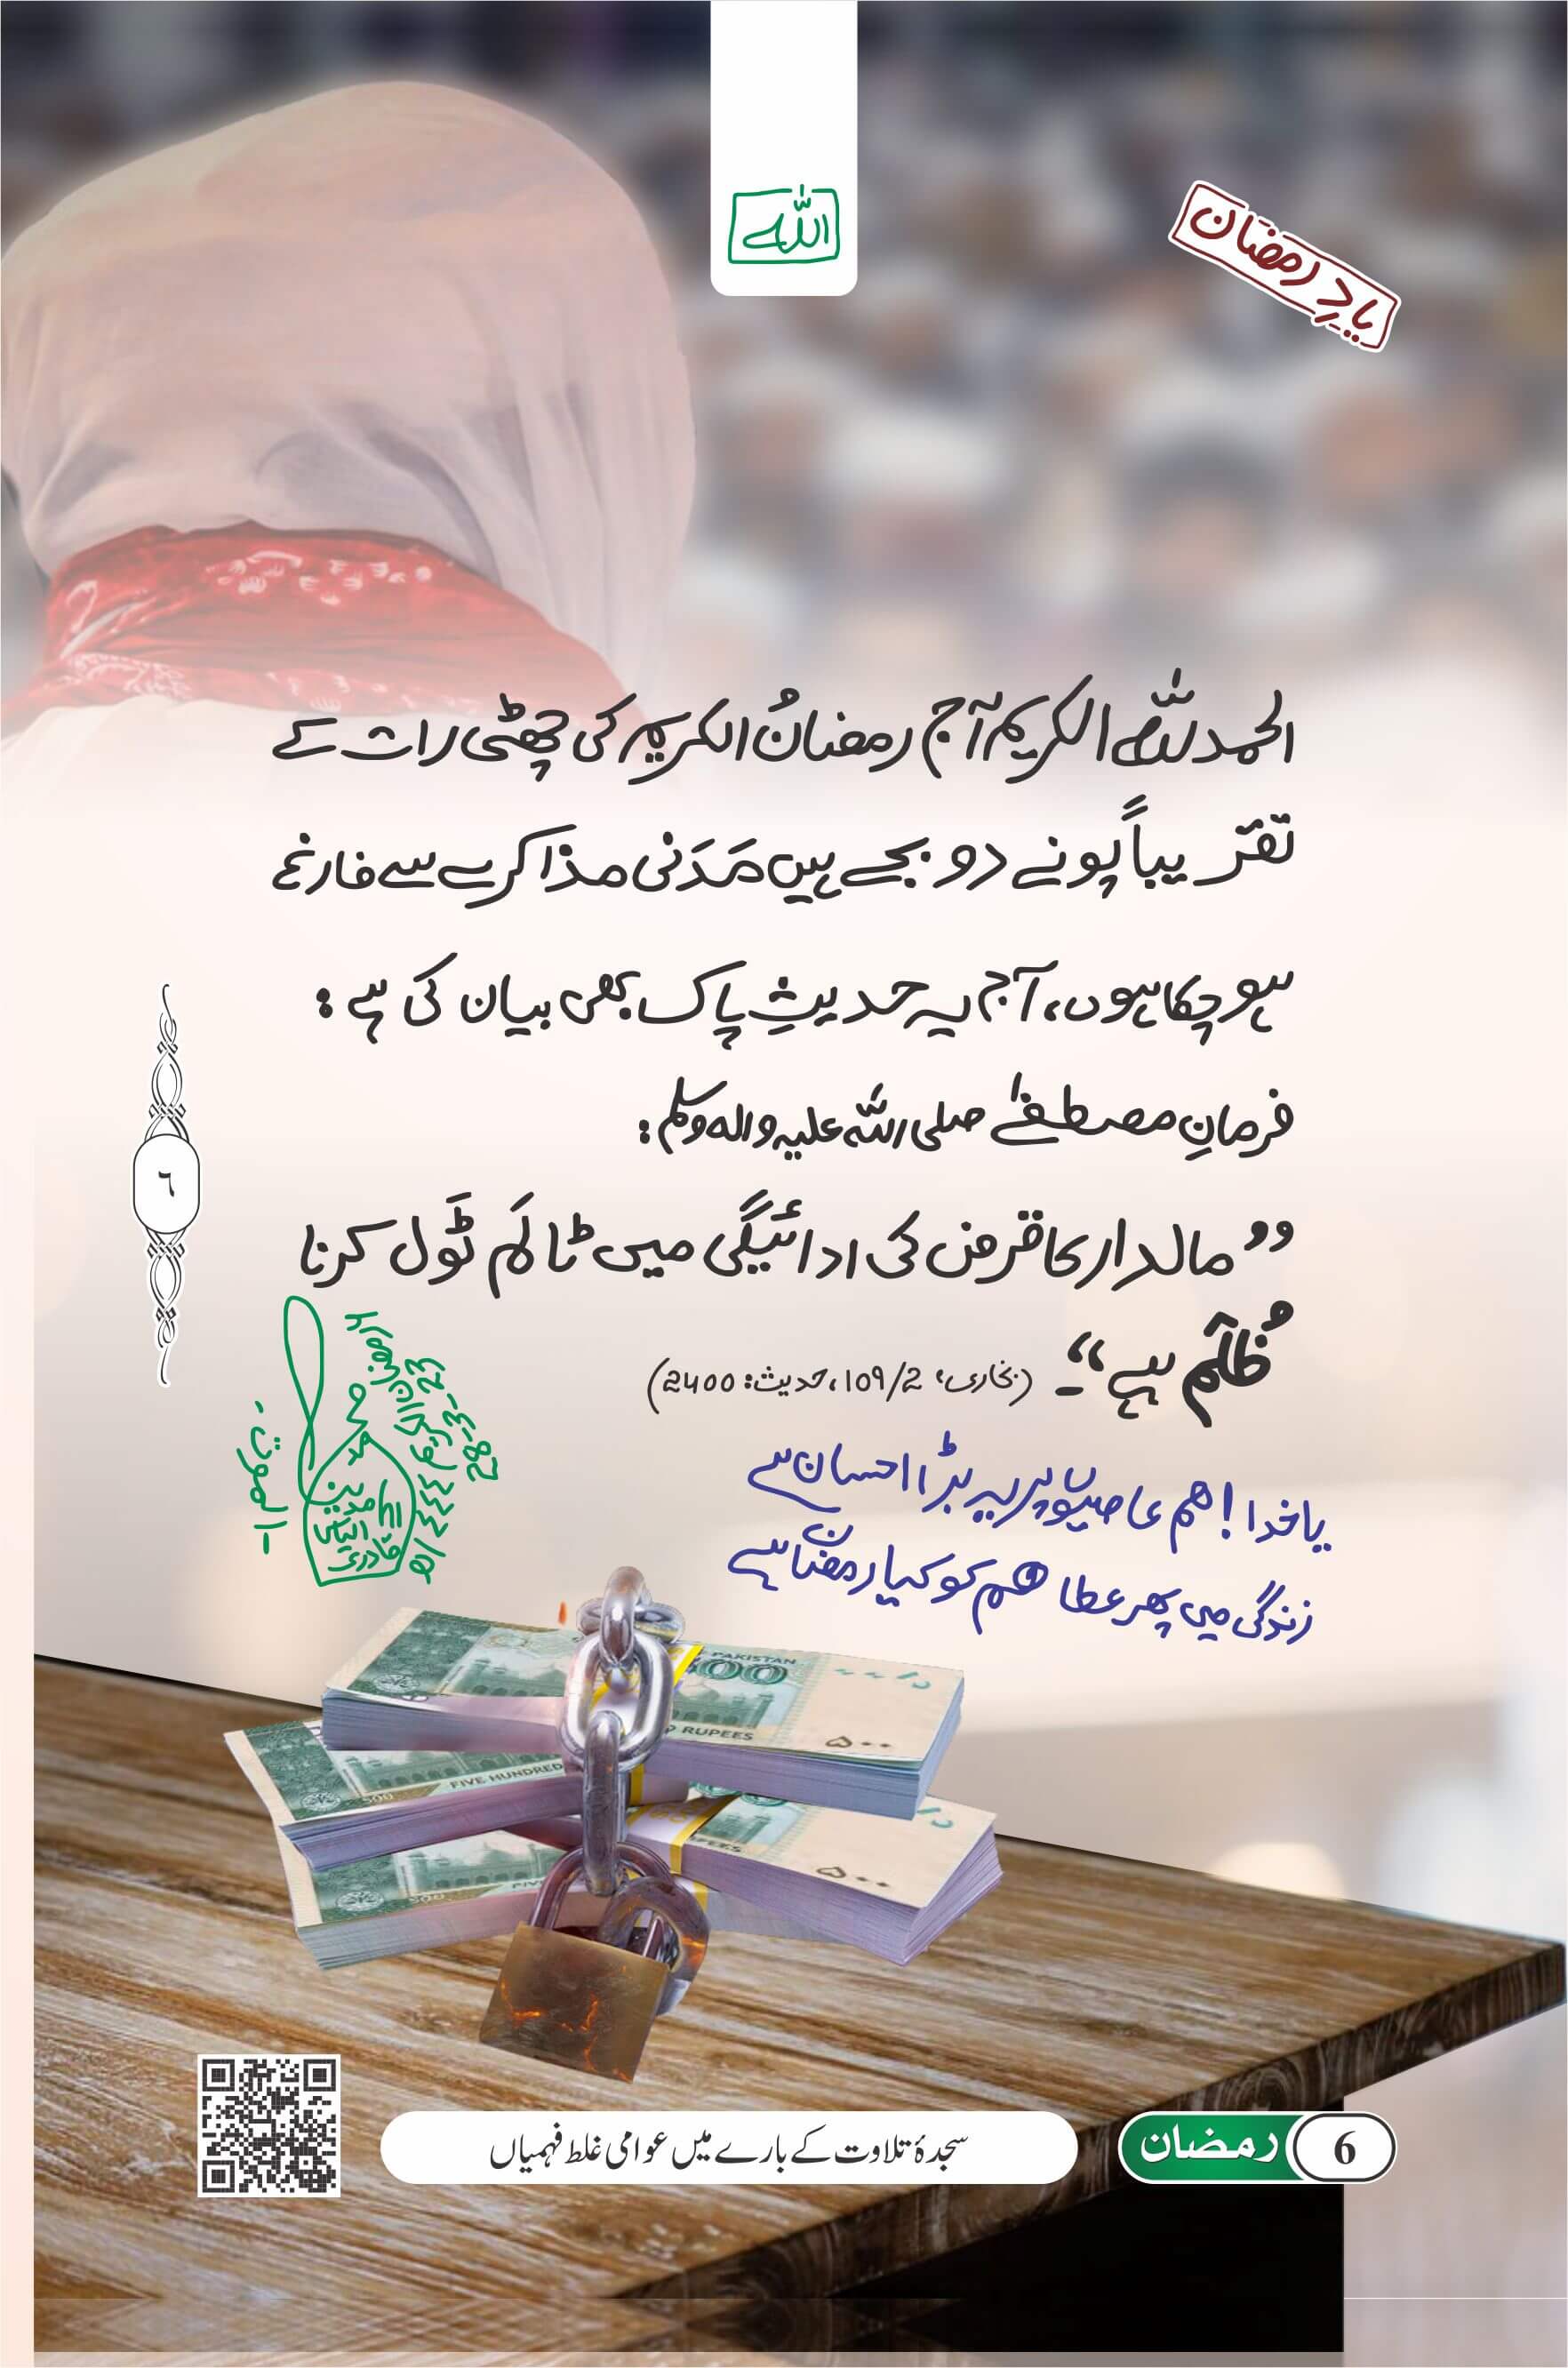 اللہ
یادِ رمضان
الحمدللہ الکریم آج رمضانُ الکریم کی چھٹی رات کے
تقریباً پونے دو بجے ہیں مَدَنی مذاکرے سے فارغ
ہو چکا ہوں، آج یہ حدیثِ پاک بھی بیان کی ہے:
فرمانِ مصطفےٰ صلی اللہ علیہ والہ وسلم:
”مالدار کا قرض کی ادائیگی میں ٹالَم ٹَول کرنا
ظُلْم ہے“۔ (بخاری، 109/2، حدیث: 2400)
یا خدا! ہم عاصیوں پر یہ بڑا احسان ہے
زندگی میں پھر عطا ہم کو کیا رمضان ہے
٦
PAKISTAN
500
RUPEES
۵۰۰
FIVE HUNDRED
500
۵۰۰
500
سجدۂ تلاوت کے بارے میں عوامی غلط فہمیاں
رمضان 6